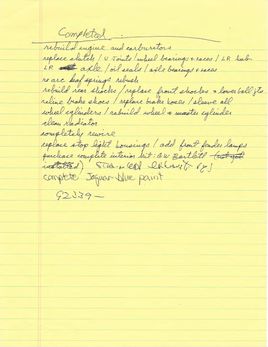 Completed
rebuild engine and carburetors
replace clutch / U joints / wheel bearings & races / LR hub
LR axle / oil seals / axle bearings & races
re arc leaf springs rebush
rebuild rear shocks / replace front shocks & lower ball jts
reline brake shoes / replace brake hoses / sleeve all
wheel cylinders / rebuild wheel & master cylinder
clean radiator
completely rewire
replace stop light housings / add front fender lamps
purchase complete interior kit: BW Bartlett (not yet
installed)
complete Jaguar blue paint